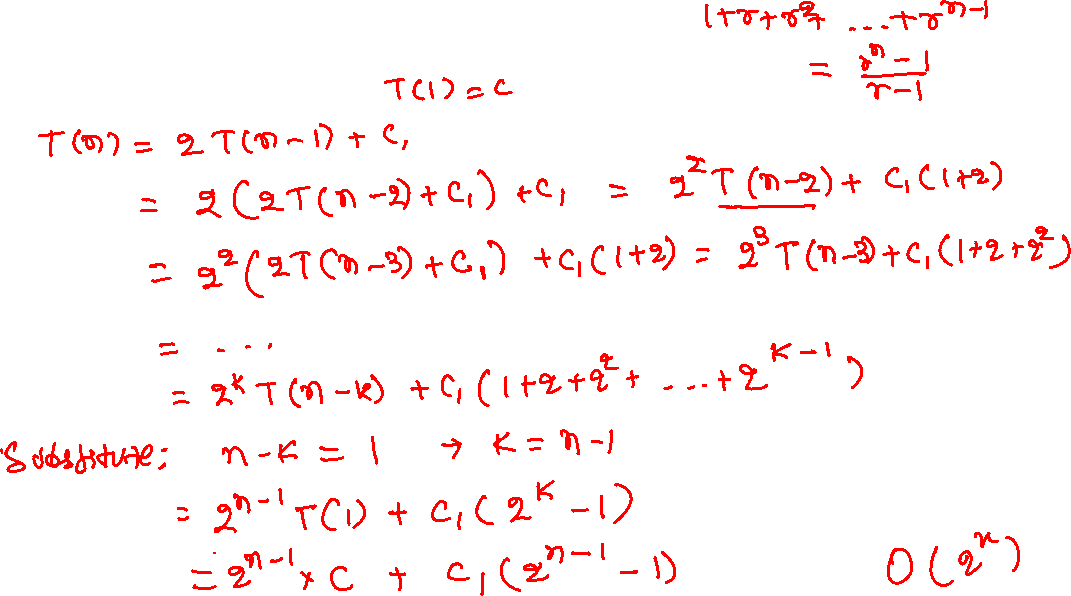 1+r+r²+ ...+r^(n-1)
= (r^n - 1)/(r-1)
T(1) = C
T(n) = 2T(n-1) + C₁
= 2(2T(n-2)+C₁) + C₁ = 2²T(n-2) + C₁(1+2)
= 2²(2T(n-3)+C₁) + C₁(1+2) = 2³T(n-3)+C₁(1+2+2²)
= ...
= 2^k T(n-k) + C₁(1+2+2²+ ...+2^(k-1))
Substitute: n-k = 1 → k = n-1
= 2^(n-1) T(1) + C₁(2^k - 1)
= 2^(n-1) × C + C₁(2^(n-1) - 1) O(2^n)